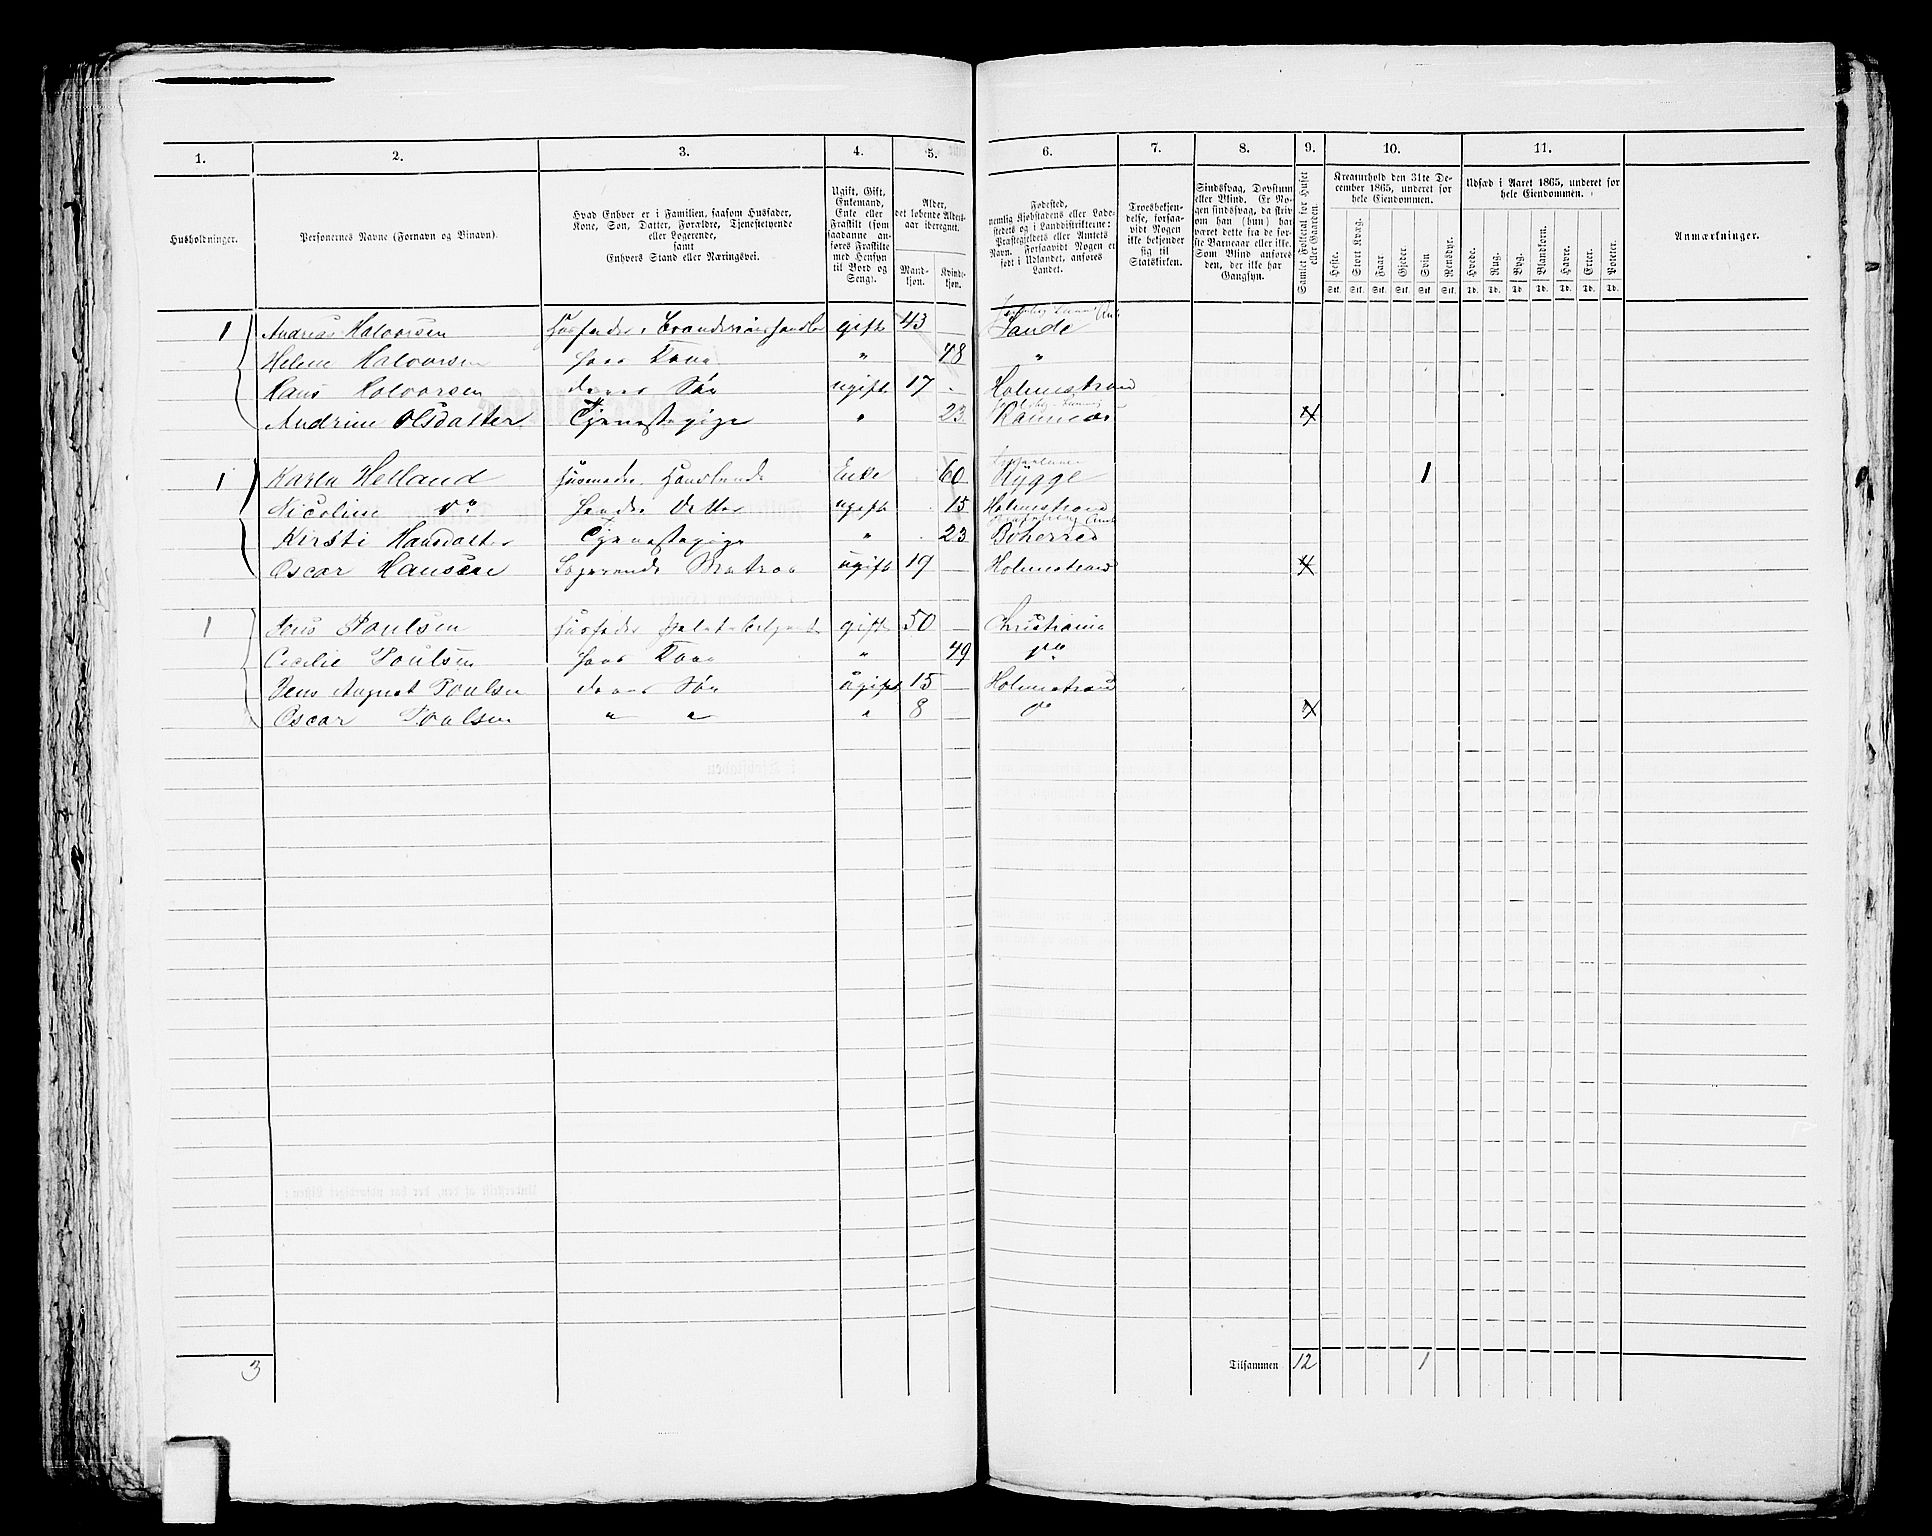 1. 2. 3. 4. 5. 6. 7. 8. 9. 10. 11.
Husholdninger.
Personernes Navne (Fornavn og Binavn).
Hvad Enhver er i Familien, saasom Husfader,
Kone, Søn, Datter, Forældre, Tjenestetyende
eller Logerende,
samt
Enhvers Stand eller Næringsvei.
Ugift, Gift,
Enkemand,
Enke eller
Fraskilt (som
saadanne an-
føres Fraskilte
med Hensyn
til Bord og
Seng).
Alder,
det løbende Alders-
aar iberegnet.
Mand-
kjøn.
Kvinde-
kjøn.
Fødested,
nemlig Kjøbstadens eller Lade-
stedets og i Landdistrikterne:
Præstegjeldets eller Annexets
Navn. Forsaavidt Nogen er
født i Udlandet, anføres
Landet.
Troesbekjen-
delse, forsaa-
vidt Nogen
ikke bekjender
sig til
Statskirken.
Sindssvag, Døvstum
eller Blind. Er No-
gen sindssvag, da skriv
om han (hun) har
været dette fra de før-
ste Barneaar eller ikke.
Som Blind anføres
den, der ikke har
Gangsyn.
Samlet Folketal for Huset
eller Gaarden.
Kreaturhold den 31te De-
cember 1865, underet for
hele Eiendommen.
Heste. Stort Kvæg. Faar Gjeder. Svin Rensdyr.
Stk. Stk. Stk. Stk. Stk. Stk.
Udsæd i Aaret 1865, underet for
hele Eiendommen.
Hvede. Rug. Byg. Blandkorn. Havre. Erter. Poteter.
Td. Td. Td. Td. Td. Td. Td.
Anmærkninger.
1 Andreas Halvorsen Husfader, Brændeviinshandler gift 43 Sande
Helene Halvorsen hans Kone " 48 "
Hans Halvorsen deres Søn ugift 17 Holmestrand
Andrine Olsdatter Tjenestepige " 23 Ramnæs 4
1 Karen Helland Husmoder, Handlende Enke 60 Rygge 1
Nicoline do hendes Datter ugift 15 Holmestrand
Kirsti Hansdatter Tjenestepige " 23 Boherred
Oscar Hansen Logerende Matros ugift 19 Holmestrand 4
1 Jens Poulsen Husfader gift 50 Christiania
Cecilie Poulsen hans Kone " 49 do
Jens August Poulsen deres Søn ugift 15 Holmestrand
Oscar Poulsen " " " 8 do 4
3 Tilsammen 12 1